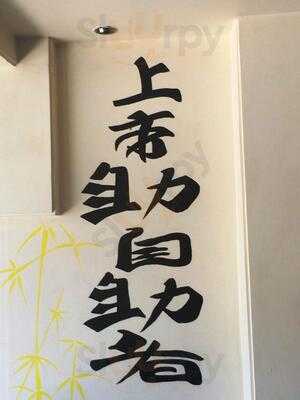 上帝助自助者
Sluurpy